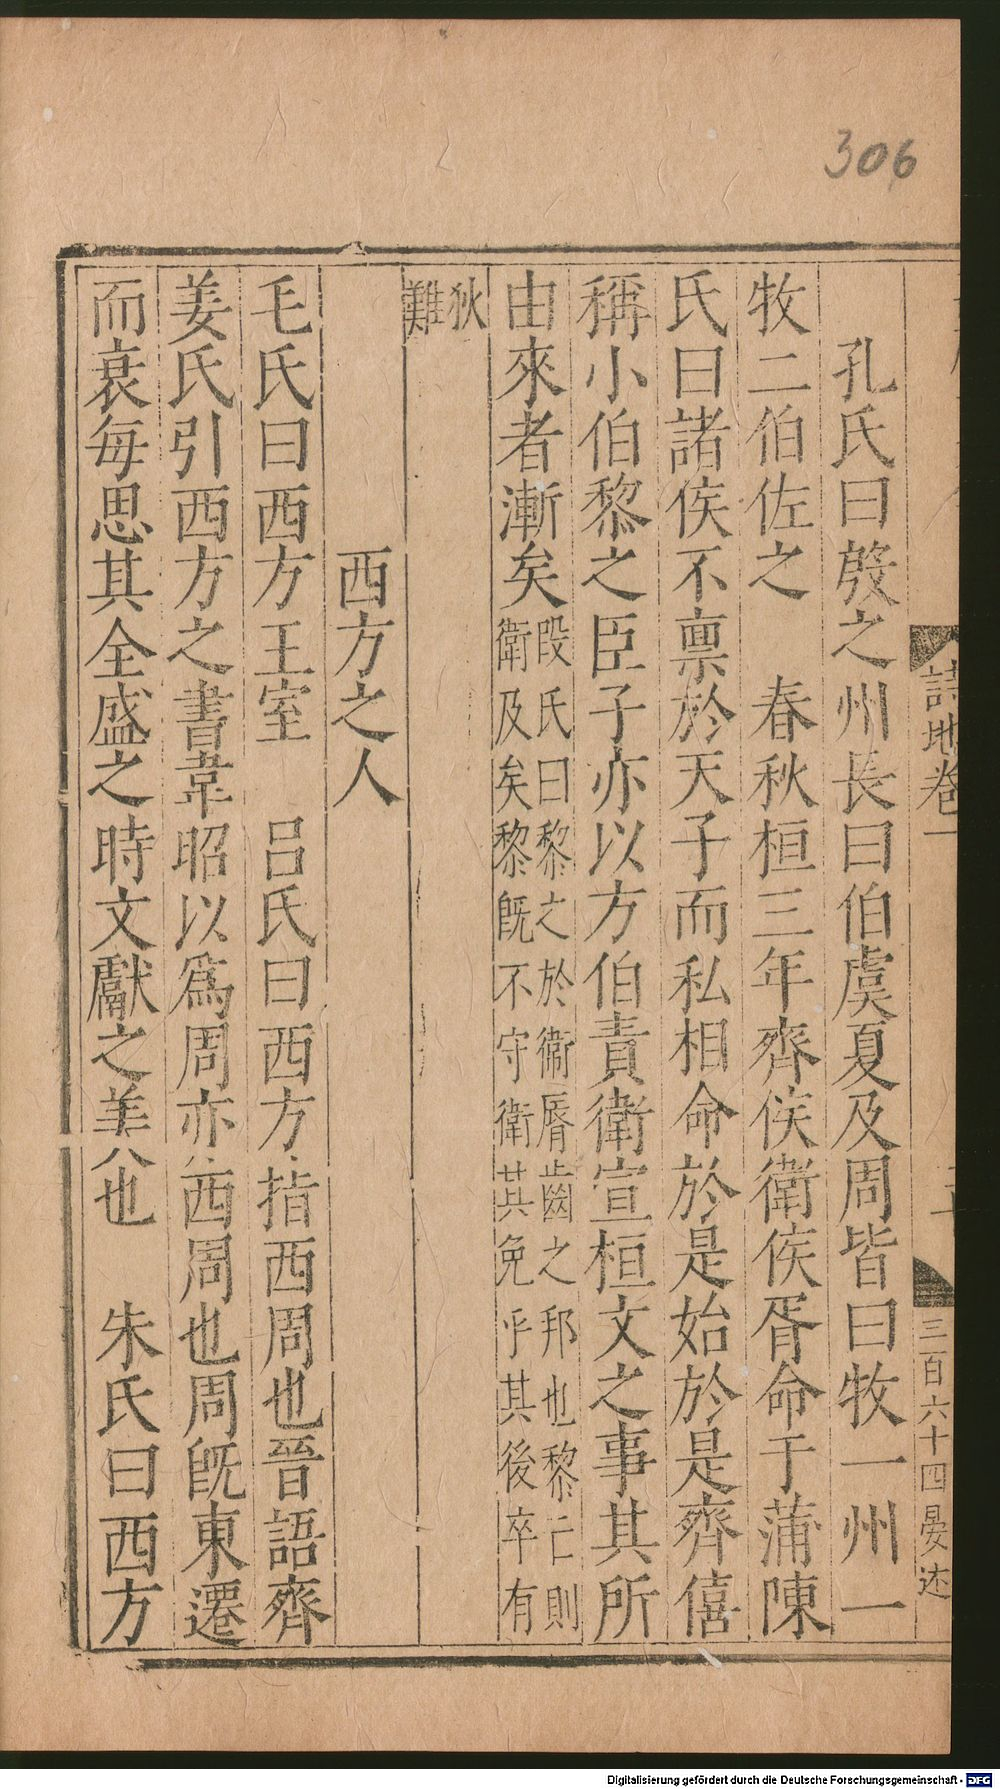 306
詩地卷一
三百六十四晏述
孔氏曰殷之州長曰伯虞夏及周皆曰牧一州一
牧二伯佐之　春秋桓三年齊侯衛侯胥命于蒲陳
氏曰諸侯不禀於天子而私相命於是始於是齊僖
稱小伯黎之臣子亦以方伯責衛宣桓文之事其所
由來者漸矣
段氏曰黎之於衛脣齒之邦也黎亡則
衛及矣黎旣不守衛其免乎其後卒有
狄
難
西方之人
毛氏曰西方王室　呂氏曰西方指西周也晉語齊
姜氏引西方之書韋昭以爲周亦西周也周旣東遷
而衰每思其全盛之時文獻之美六也　朱氏曰西方
Digitalisierung gefördert durch die Deutsche Forschungsgemeinschaft - DFG